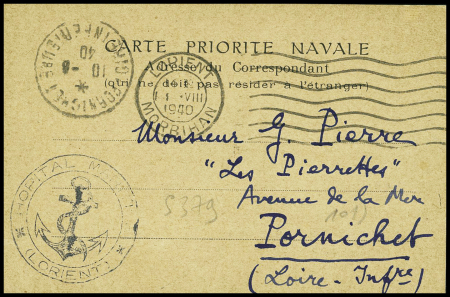 CARTE PRIORITE NAVALE
Adresse du Correspondant
(qui ne doit pas résider à l'étranger)
PORNICHET
10 -8
40
LORIENT
1 -VIII
1940
MORBIHAN
Monsieur G. Pierre
"Les Pierrettes"
Avenue de la Mer
Pornichet
(Loire-Infre)
HOPITAL
(LORIENT)
5379